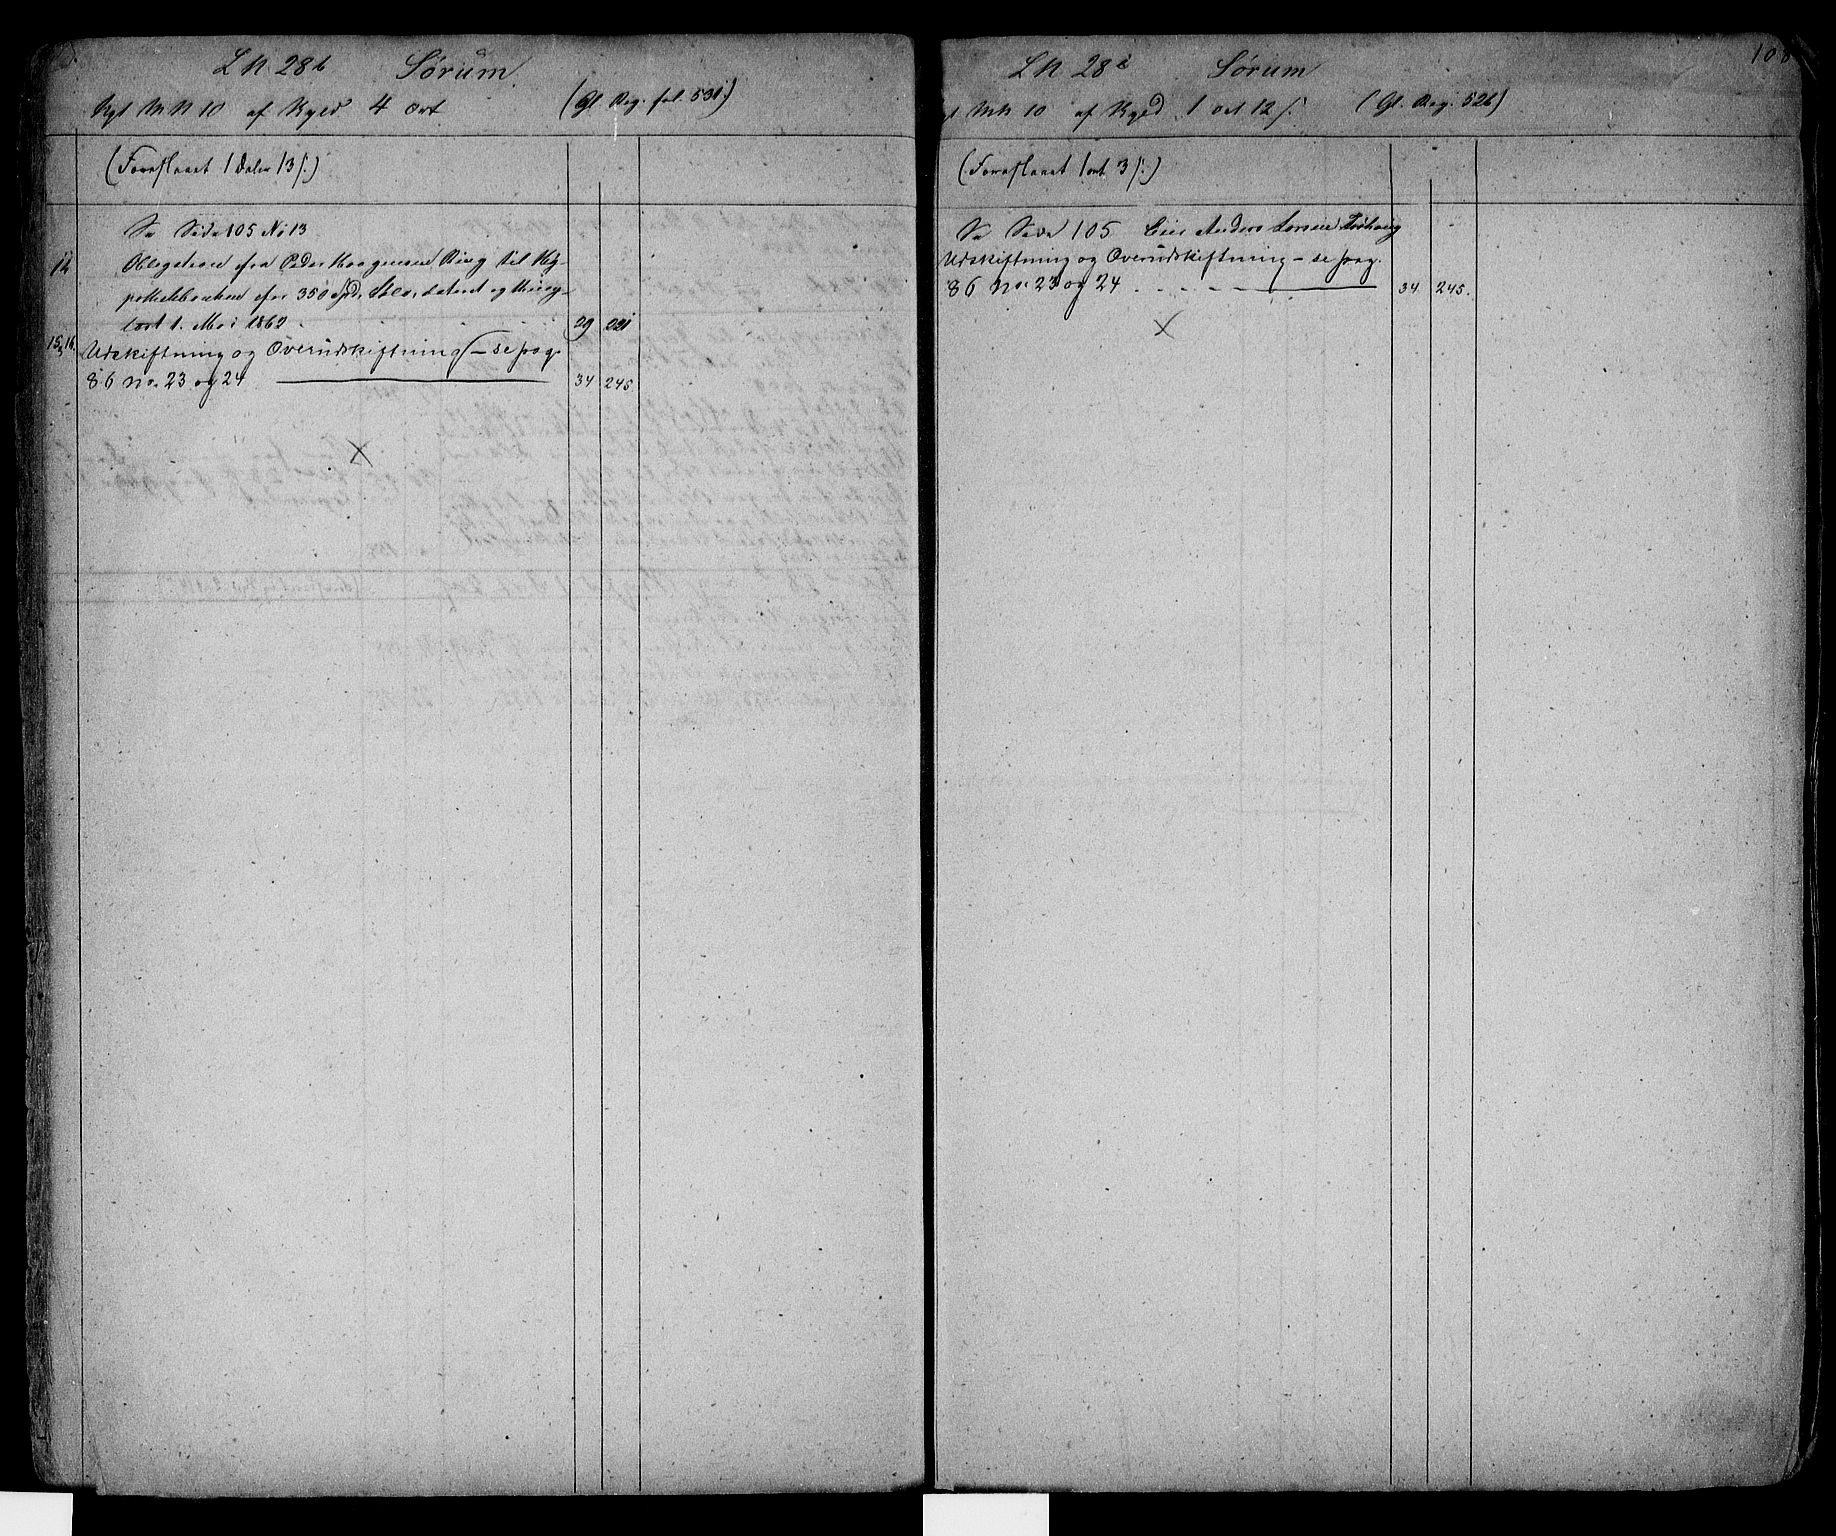 LN 28b Sørum
Nyt MN 10 af Skyld 4 ort (Gl. Reg. fol. 531.)
(Foreslaaet 1 Daler 13 s.)
Se Side 105 No 13
12 Obligation fra Peder Haagensen Ring til Hy-
pothekbanken for 350 Spd, dateret og thing-
læst 1. Mai 1862 29 221
15, 16. Udskiftning og Overudskiftning – se pag.
86 no. 23 og 24 34 245
X
LN 28c Sørum 108
MN 10 af Skyld 1 ort 12 s. (Gl. Reg. 526)
(Foreslaaet 1 ort 3 s.)
Se Side 105 Eier Anders Larsen
Udskiftning og Overudskiftning – se pag.
86 no. 23 og 24 34 245.
X